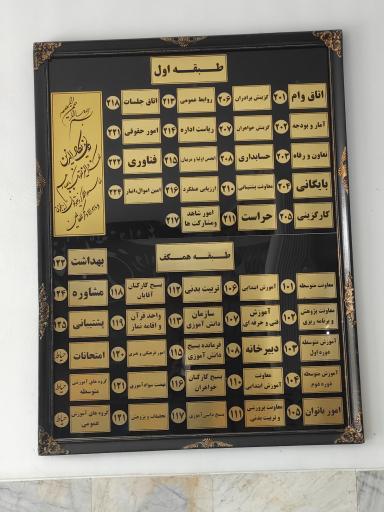 طبقه اول
۲۰۱ اتاق وام
۲۰۲ آمار و بودجه
۲۰۳ تعاون و رفاه
۲۰۴ بایگانی
۲۰۵ کارگزینی
۲۰۶ گزینش برادران
۲۰۷ گزینش خواهران
۲۰۸ حسابداری
۲۱۰ معاونت پشتیبانی
۲۱۱ حراست
۲۱۳ روابط عمومی
۲۱۴ ریاست اداره
۲۱۵ انجمن اولیا و مربیان
۲۱۶ ارزیابی عملکرد
۲۱۷ امور شاهد
و مشارکت ها
۲۱۸ اتاق جلسات
۲۲۱ امور حقوقی
۲۲۲ فناوری
۲۲۴ امین اموال-انبار
طبقه همکف
۱۰۱ معاونت متوسطه
۱۰۲ معاونت پژوهش
و برنامه ریزی
۱۰۳ آموزش متوسطه
دوره اول
۱۰۴ آموزش متوسطه
دوره دوم
۱۰۵ امور بانوان
۱۰۶ آموزش ابتدایی
۱۰۷ آموزش
فنی و حرفه ای
۱۰۸ دبیرخانه
۱۱۰ معاونت
آموزش ابتدایی
۱۱۱ معاونت پرورشی
و تربیت بدنی
۱۱۲ تربیت بدنی
۱۱۳ سازمان
دانش آموزی
۱۱۵ فرمانده بسیج
دانش آموزی
۱۱۶ بسیج کارکنان
خواهران
۱۱۷ بسیج دانش آموزی
۱۱۸ بسیج کارکنان
آقایان
۱۱۹ واحد قرآن
و اقامه نماز
۱۲۰ امور فرهنگی و هنری
۱۲۱ نهضت سوادآموزی
۱۲۱ تحقیقات و پژوهش
بهداشت
مشاوره
پشتیبانی
امتحانات
گروه های آموزشی
متوسطه
گروه های آموزشی
عمومی